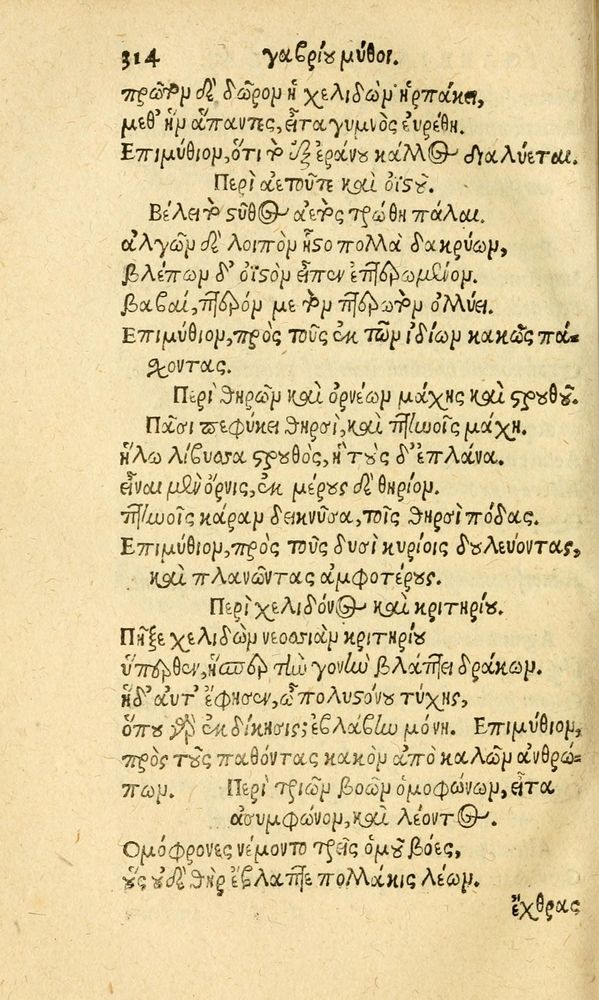 314 γαβρίου μύθοι.
πρῶτον δὲ δῶρον ἡ χελιδὼν ἡρπάκει,
μεθ' ἣν ἅπαντες, εἶτα γυμνὸς εὑρέθη.
Επιμύθιον, ὅτι τὸ ἐξ ἐράνου κάλλος διαλύεται.
Περὶ ἀετοῦτε καὶ ὀϊστοῦ.
Βέλει τὸ στῆθος ἀετὸς τρώθη πάλαι.
ἀλγῶν δὲ λοιπὸν ἧστο πολλὰ δακρύων,
βλέπων δ' ὀϊστὸν εἶπεν ἐπτερωμένον.
βαβαί, πτερόν με τὸν πτερωτὸν ὀλλύει.
Επιμύθιον, πρὸς τοὺς ἐκ τῶν ἰδίων κακῶς πά-
σχοντας.
Περὶ θηρῶν καὶ ὀρνέων μάχης καὶ στρουθοῦ.
Πᾶσι πεφύκει θηρσὶ, καὶ πτηνοῖς μάχη.
ἥλω λίβυσσα στρουθὸς, ἡ τοὺς δ' ἐπλάνα.
εἶναι μὲν ὄρνις, ἐκ μέρους δὲ θηρίον.
πτηνοῖς κάραν δεικνῦσα, τοῖς θηρσὶ πόδας.
Επιμύθιον, πρὸς τοὺς δυσὶ κυρίοις δουλεύοντας,
καὶ πλανῶντας ἀμφοτέρους.
Περὶ χελιδόνος καὶ κριτηρίου.
Πῆξε χελιδὼν νεοσσιὰν κριτηρίου
ὕπερθεν, ἧσπερ τὴν γονὴν βλάπτει δράκων.
ἡ δ' αὖτ' ἔφησεν, ὦ πολυστόνου τύχης,
ὅπου γὰρ ἐκδίκησις; ἐβλάβην μόνη. Επιμύθιον,
πρὸς τοὺς παθόντας κακὸν ἀπὸ καλῶν ἀνθρώ-
πων. Περὶ τριῶν βοῶν ὁμοφώνων, εἶτα
ἀσυμφώνον, καὶ λέοντος.
Ομόφρονες νέμοντο τρεῖς ὁμοῦ βόες,
οὓς οὐδὲ θὴρ ἔβλαπτε πολλάκις λέων.
ἔχθρας